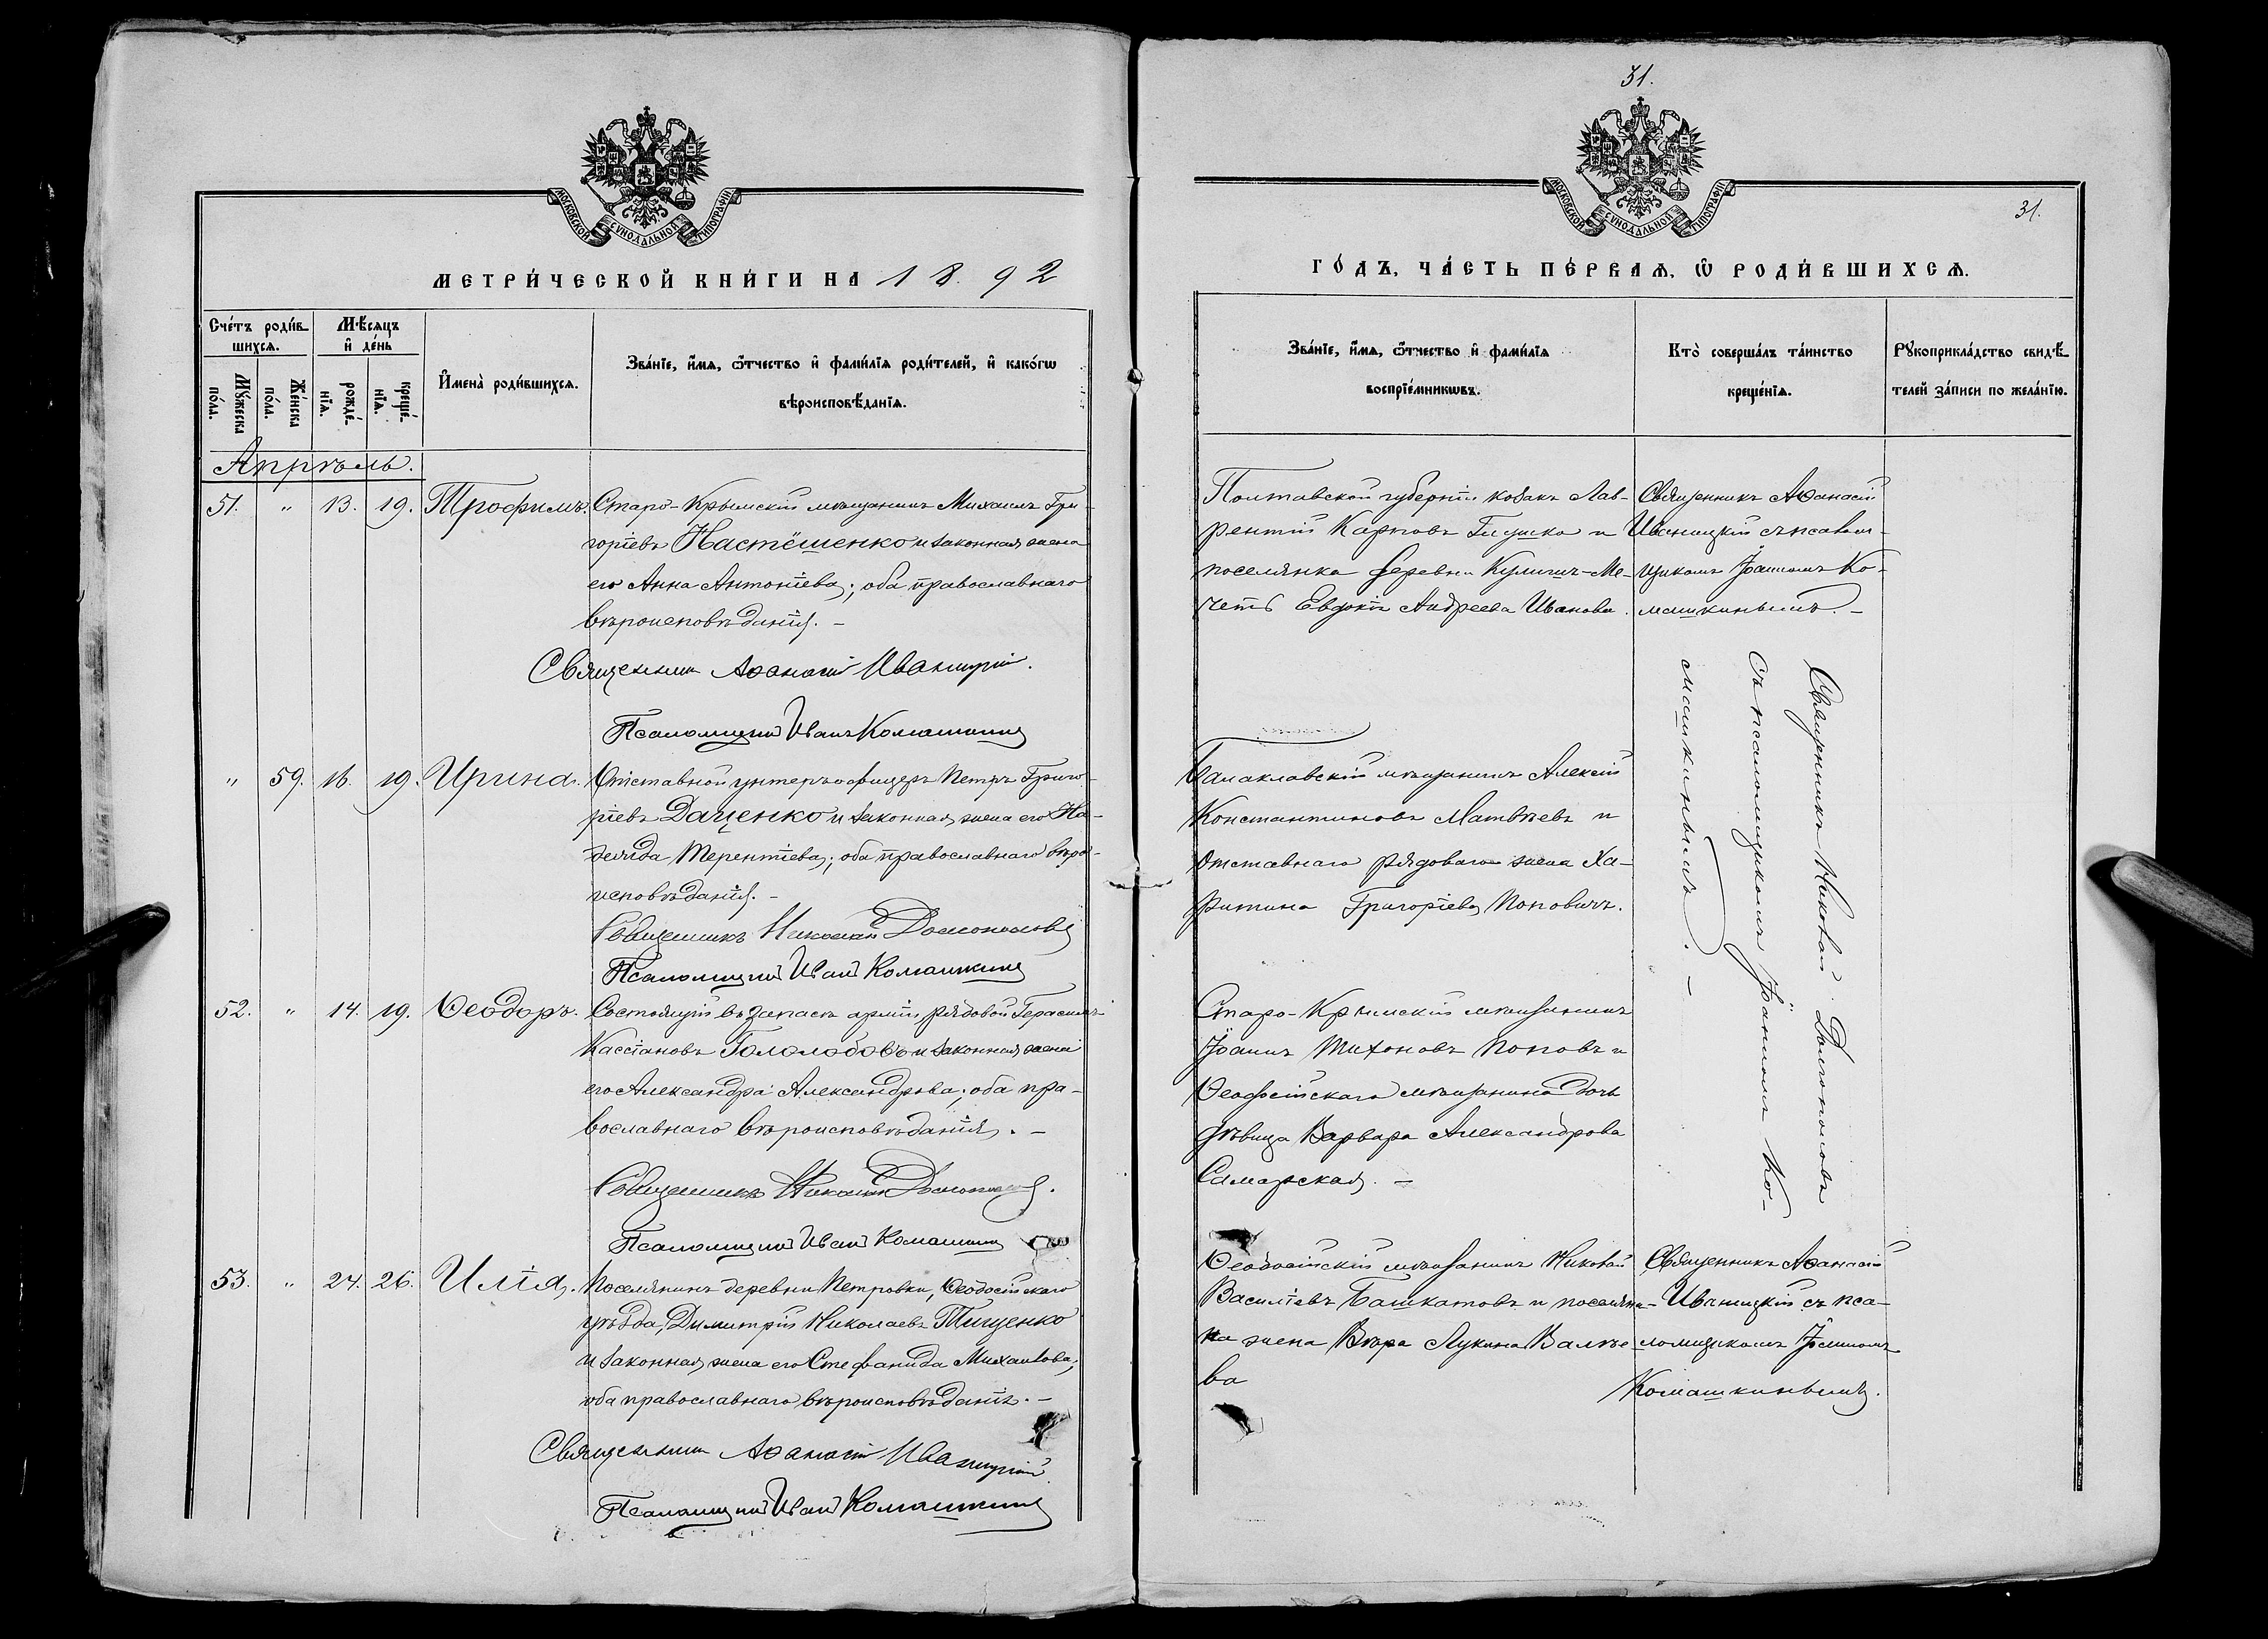 31.
МОСКОВСКОЙ СУНОДАЛЬНОЙ ТИПОГРАФІИ
МЕТРИ́ЧЕСКОЙ КНИ́ГИ НА 1892
Сче́тъ роди́вшихся.
Мѣ́сяцъ и҆ де́нь
Мꙋ́жеска по́ла.
Же́нска по́ла.
рожде́нїя.
креще́нїя.
И҆мена̀ роди́вшихся.
Зва́нїе, и҆́мя, ѻ҆́тчество и҆ фами́лїя роди́телей, и҆ како́гѡ
вѣроисповѣ́данїя.
Апрѣль.
51. " 13. 19. Трофимъ. Старо-Крымскій мѣщанинъ Михаилъ Гри-
горіевъ Настёшенко и законная жена
его Анна Антоніева; оба православнаго
вѣроисповѣданія. -
Священникъ Аѳанасій Иваницкій.
Псаломщикъ Иванъ Комашкинъ
" 59. 16. 19. Ирина. Отставной унтеръ-офицеръ Петръ Григо-
ріевъ Даценко и законная жена его На-
дежда Терентіева; оба православнаго вѣро-
исповѣданія. -
Священникъ Николай Долгополовъ
Псаломщикъ Иванъ Комашкинъ
52. " 14. 19. Ѳеодоръ. Состоящій въ запасѣ арміи рядовой Герасимъ
Кассіановъ Гололобовъ и законная жена
его Александра Александрова; оба пра-
вославнаго вѣроисповѣданія. -
Священникъ Николай Долгополовъ.
Псаломщикъ Иванъ Комашкинъ
53. " 24. 26. Илія. Поселянинъ деревни Петровки, Ѳеодосійскаго
уѣзда, Димитрій Николаевъ Тищенко
и законная жена его Стефанида Михаилова;
оба православнаго вѣроисповѣданія. -
Священникъ Аѳанасій Иваницкій.
Псаломщикъ Иванъ Комашкинъ
МОСКОВСКОЙ СУНОДАЛЬНОЙ ТИПОГРАФІИ
31.
ГО́ДЪ, ЧА́СТЬ ПЕ́РВАЯ, Ѡ҆ РОДИ́ВШИХСЯ.
Зва́нїе, и҆́мя, ѻ҆́тчество и҆ фами́лїя
воспрїе́мникѡвъ.
Кто̀ соверша́лъ та́инство
креще́нїя.
Рꙋкоприкла́дство свидѣ́-
телей за́писи по жела́нїю.
Полтавской губерніи козакъ Лав-
рентій Карповъ Глушко и
поселянка деревни Кулишъ-Ме-
четь Евдокія Андреева Иванова.
Священникъ Аѳанасій
Иваницкій съ псалом-
щикомъ Іоанномъ Ко-
машкинымъ. -
Балаклавскій мѣщанинъ Алексій
Константиновъ Матвѣевъ и
отставнаго рядового жена Ха-
ритина Григоріева Поповичъ.
Священникъ Николай Долгополовъ
съ псаломщикомъ Іоанномъ Ко-
машкинымъ. -
Старо-Крымскій мѣщанинъ
Іоаннъ Тихоновъ Поповъ и
Ѳеодосійскаго мѣщанина дочь
дѣвица Варвара Александрова
Самарская. -
Ѳеодосійскій мѣщанинъ Николай
Василіевъ Башкатовъ и поселяни-
на жена Вѣра Лукина Валѣе-
ва
Священникъ Аѳанасій
Иваницкій съ пса-
ломщикомъ Іоанномъ
Комашкинымъ.